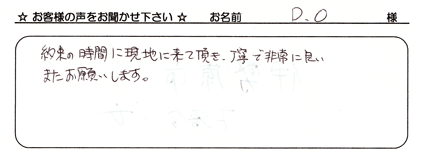 ☆ お客様の声をお聞かせ下さい ☆ お名前 D.O 様
約束の時間に現地に来て頂き、丁寧で非常に良い
またお願いします。